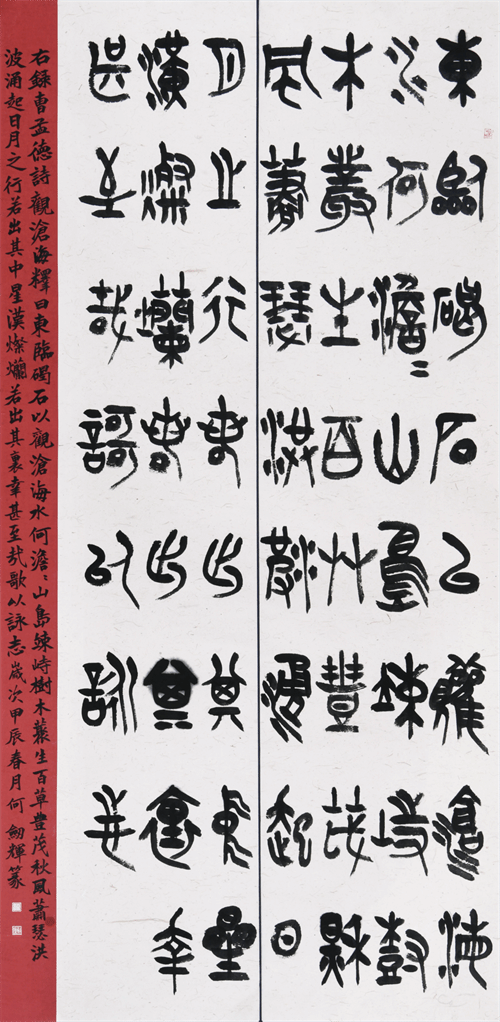 東臨碣石以觀滄海
水何澹〻山島竦峙樹
木叢生百艸豐茂秋
風蕭瑟洪波涌起日
月之行若出其中星
漢燦爛若出其裏幸
甚至哉歌以詠志
右錄曹孟德詩觀滄海釋曰東臨碣石以觀滄海水何澹〻山島竦峙樹木叢生百草豐茂秋風蕭瑟洪
波涌起日月之行若出其中星漢燦爛若出其裏幸甚至哉歌以詠志歲次甲辰春月何劍輝篆